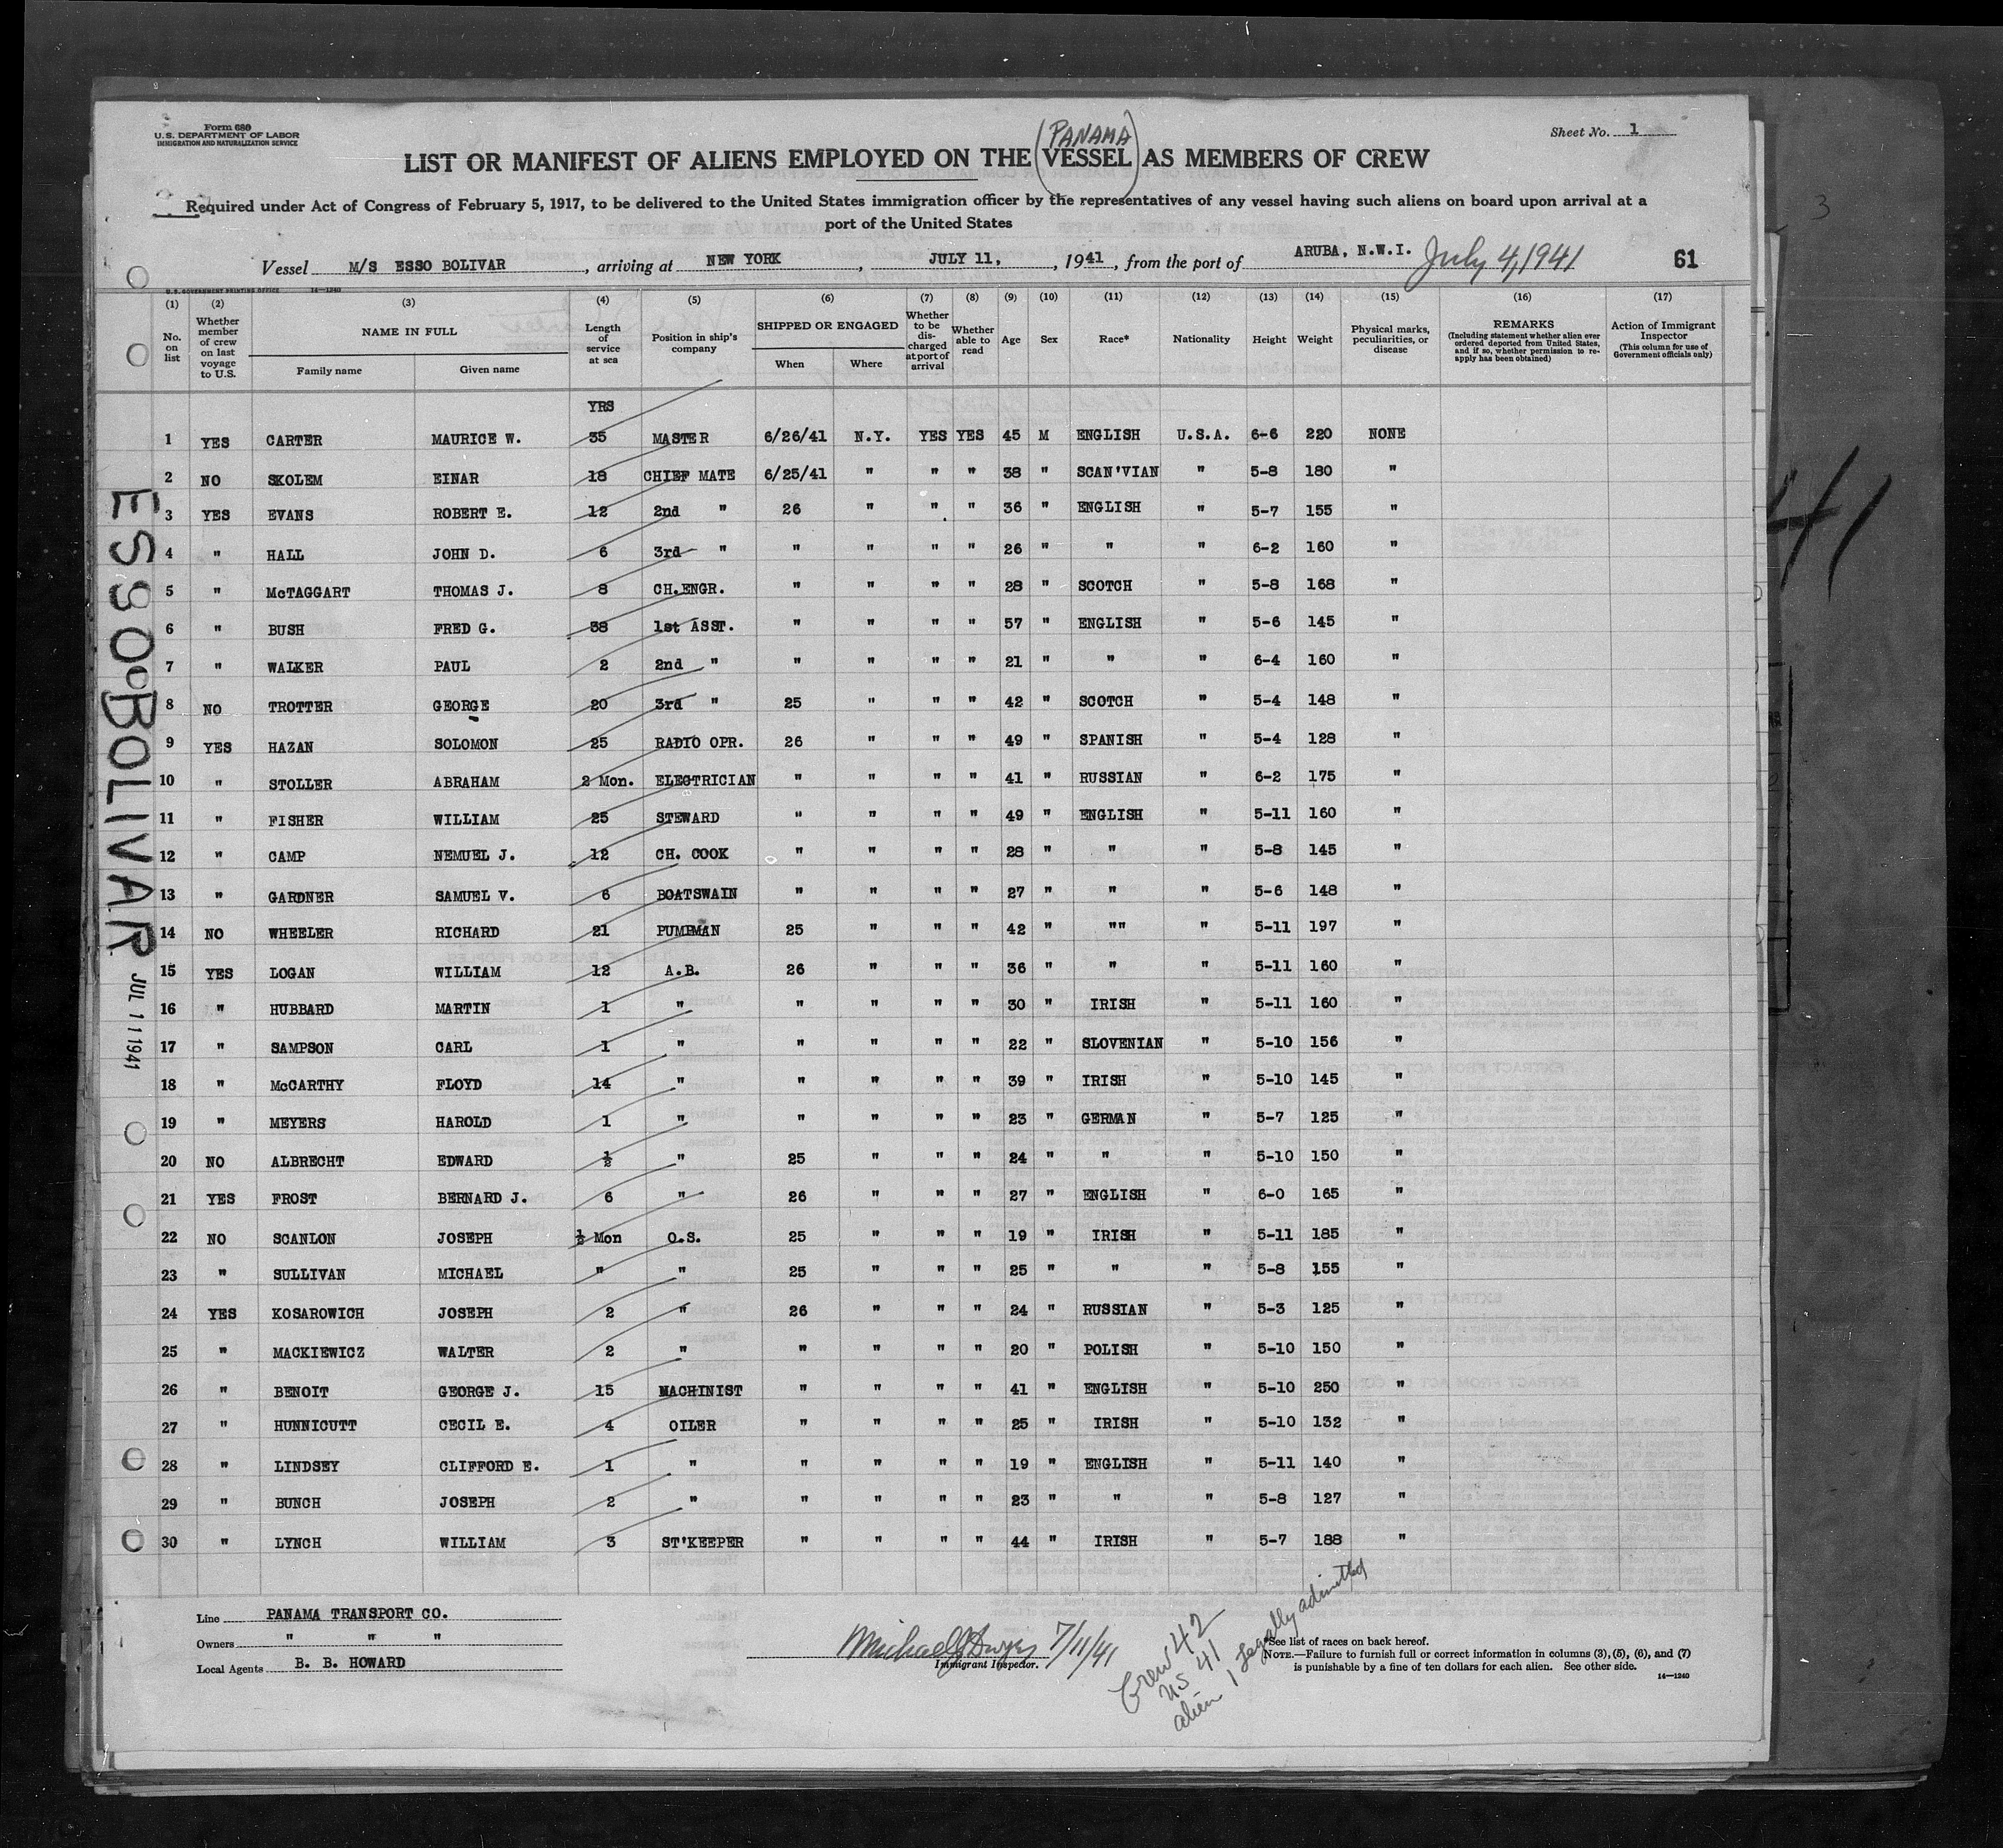 Form 680
U.S. DEPARTMENT OF LABOR
IMMIGRATION AND NATURALIZATION SERVICE
Sheet No. 1
(PANAMA)
LIST OR MANIFEST OF ALIENS EMPLOYED ON THE VESSEL AS MEMBERS OF CREW
Required under Act of Congress of February 5, 1917, to be delivered to the United States immigration officer by the representatives of any vessel having such aliens on board upon arrival at a
port of the United States
Vessel M/S ESSO BOLIVAR, arriving at NEW YORK, JULY 11, 1941, from the port of ARUBA, N.W.I. July 4, 1941 61
U.S. GOVERNMENT PRINTING OFFICE 14—1240
(1) No. on list
(2) Whether member of crew on last voyage to U.S.
(3) NAME IN FULL Family name Given name
(4) Length of service at sea
(5) Position in ship's company
(6) SHIPPED OR ENGAGED When Where
(7) Whether to be discharged at port of arrival
(8) Whether able to read
(9) Age
(10) Sex
(11) Race*
(12) Nationality
(13) Height
(14) Weight
(15) Physical marks, peculiarities, or disease
(16) REMARKS (Including statement whether alien ever ordered deported from United States, and if so, whether permission to reapply has been obtained)
(17) Action of Immigrant Inspector (This column for use of Government officials only)
YRS
1 YES CARTER MAURICE W. 35 MASTER 6/26/41 N.Y. YES YES 45 M ENGLISH U.S.A. 6-6 220 NONE
2 NO SKOLEM EINAR 18 CHIEF MATE 6/25/41 " " " 38 " SCAN'VIAN " 5-8 180 "
3 YES EVANS ROBERT E. 12 2nd " 26 " " " 36 " ENGLISH " 5-7 155 "
4 " HALL JOHN D. 6 3rd " " " " " 26 " " " 6-2 160 "
5 " McTAGGART THOMAS J. 8 CH.ENGR. " " " " 28 " SCOTCH " 5-8 168 "
6 " BUSH FRED G. 38 1st ASST. " " " " 57 " ENGLISH " 5-6 145 "
7 " WALKER PAUL 2 2nd " " " " " 21 " " " 6-4 160 "
8 NO TROTTER GEORGE 20 3rd " 25 " " " 42 " SCOTCH " 5-4 148 "
9 YES HAZAN SOLOMON 25 RADIO OPR. 26 " " " 49 " SPANISH " 5-4 128 "
10 " STOLLER ABRAHAM 2 Mon. ELECTRICIAN " " " " 41 " RUSSIAN " 6-2 175 "
11 " FISHER WILLIAM 25 STEWARD " " " " 49 " ENGLISH " 5-11 160 "
12 " CAMP NEMUEL J. 12 CH. COOK " " " " 28 " " " 5-8 145 "
13 " GARDNER SAMUEL V. 6 BOATSWAIN " " " " 27 " " " 5-6 148 "
14 NO WHEELER RICHARD 21 PUMPMAN 25 " " " 42 " "" " 5-11 197 "
15 YES LOGAN WILLIAM 12 A.B. 26 " " " 36 " " " 5-11 160 "
16 " HUBBARD MARTIN 1 " " " " " 30 " IRISH " 5-11 160 "
17 " SAMPSON CARL 1 " " " " " 22 " SLOVENIAN " 5-10 156 "
18 " McCARTHY FLOYD 14 " " " " " 39 " IRISH " 5-10 145 "
19 " MEYERS HAROLD 1 " " " " " 23 " GERMAN " 5-7 125 "
20 NO ALBRECHT EDWARD ½ " 25 " " " 24 " " " 5-10 150 "
21 YES FROST BERNARD J. 6 " 26 " " " 27 " ENGLISH " 6-0 165 "
22 NO SCANLON JOSEPH ½ Mon O.S. 25 " " " 19 " IRISH " 5-11 185 "
23 " SULLIVAN MICHAEL " " 25 " " " 25 " " " 5-8 155 "
24 YES KOSAROWICH JOSEPH 2 " 26 " " " 24 " RUSSIAN " 5-3 125 "
25 " MACKIEWICZ WALTER 2 " " " " " 20 " POLISH " 5-10 150 "
26 " BENOIT GEORGE J. 15 MACHINIST " " " " 41 " ENGLISH " 5-10 250 "
27 " HUNNICUTT CECIL E. 4 OILER " " " " 25 " IRISH " 5-10 132 "
28 " LINDSEY CLIFFORD E. 1 " " " " " 19 " ENGLISH " 5-11 140 "
29 " BUNCH JOSEPH 2 " " " " " 23 " " " 5-8 127 "
30 " LYNCH WILLIAM 3 ST'KEEPER " " " " 44 " IRISH " 5-7 188 "
ESSO BOLIVAR
JUL 11 1941
Line PANAMA TRANSPORT CO.
Owners " " "
Local Agents B. B. HOWARD
Michael J Dwyer 7/11/41
Immigrant Inspector.
Crew 42
US 41
alien 1 Legally admitted
*See list of races on back hereof.
NOTE.—Failure to furnish full or correct information in columns (3), (5), (6), and (7)
is punishable by a fine of ten dollars for each alien. See other side.
14—1240
41
3